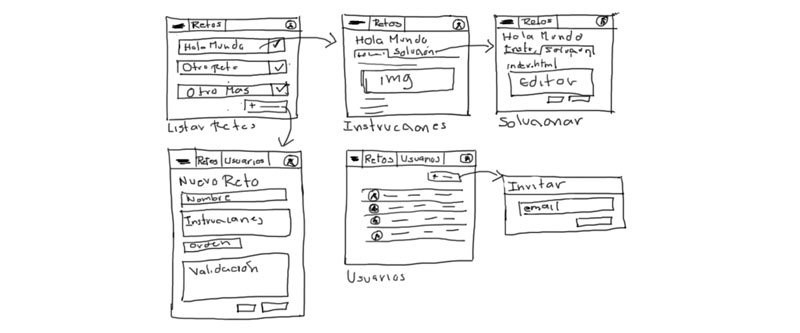 Retos
Hola Mundo
Otro reto
Otro Mas
+
Listar Retos
Retos
Hola Mundo
Solución
img
Instrucciones
Retos
Hola Mundo
Solución
index.html
Editor
Solucionar
Retos Usuarios
Nuevo Reto
Nombre
Instrucciones
Orden
Validación
Retos Usuarios
+
Usuarios
Invitar
email